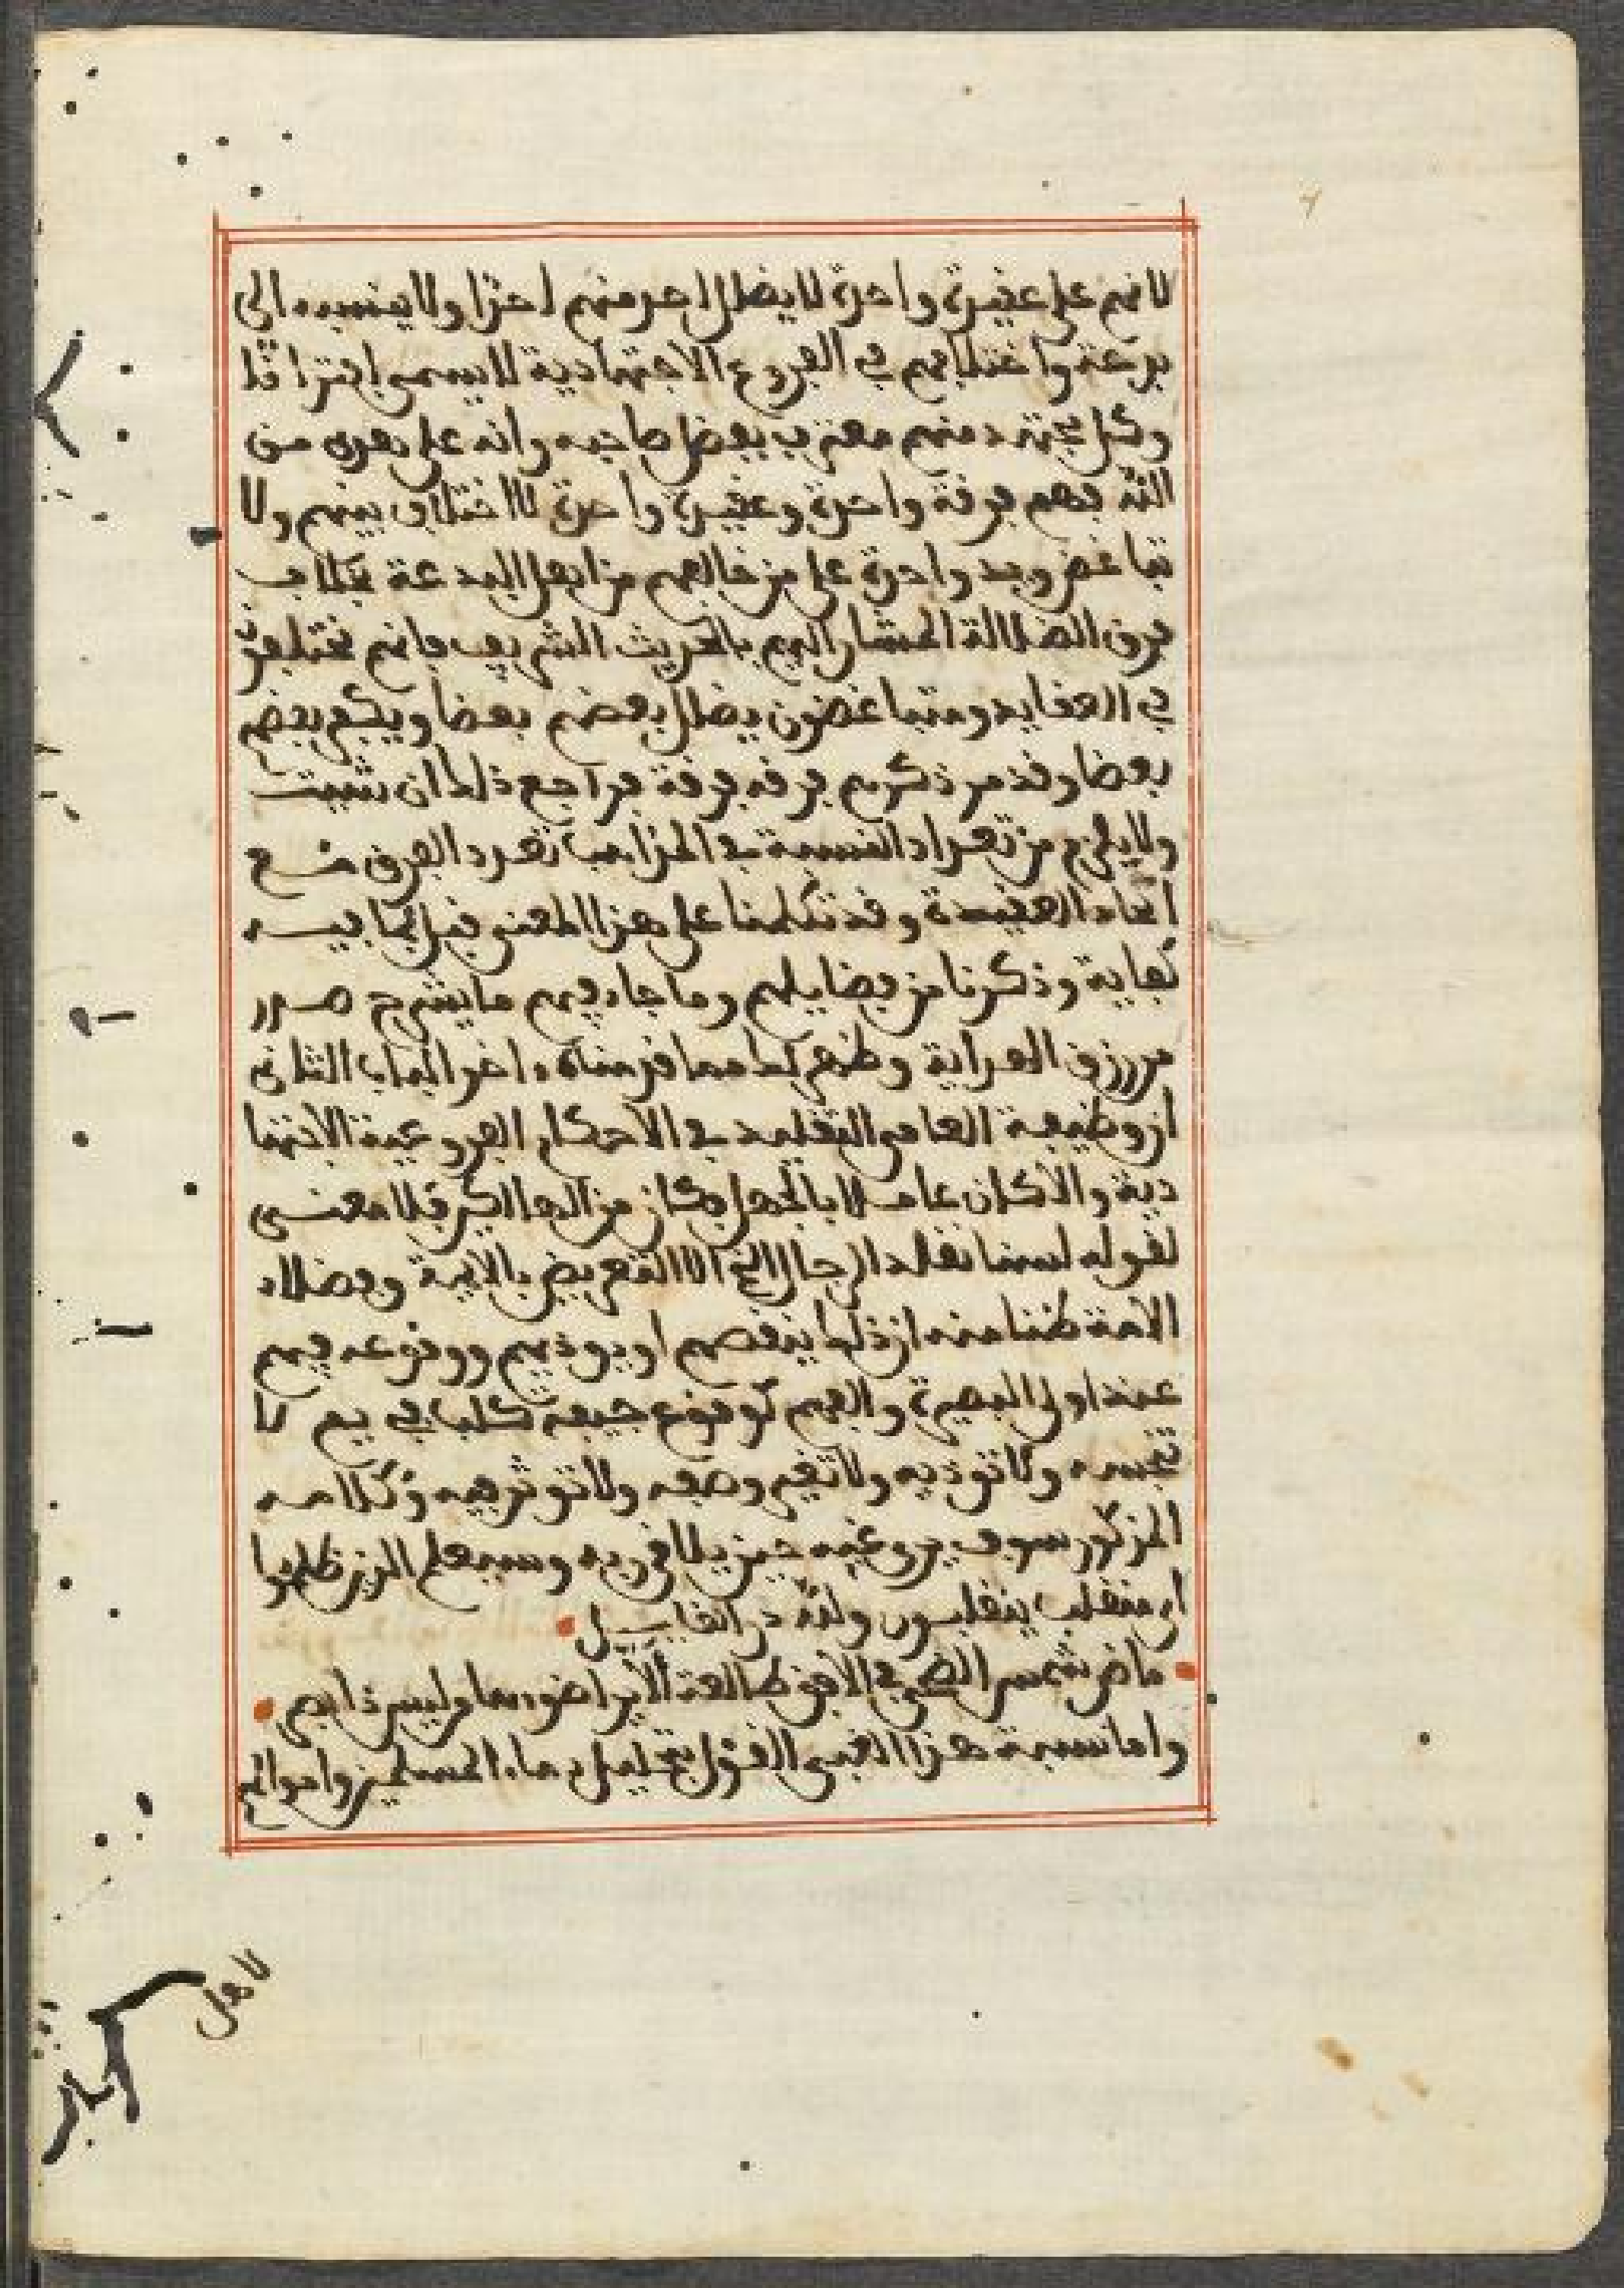 لانهم على عقيدة واحدة لا يضلل احد منهم احدا ولا ينسبه الى
بدعة واختلافهم في الفروع الاجتهادية لا يسمى افتراقا
وكل مجتهد منهم معترف بفضل صاحبه وانه على هدى من
الله فهم فرقة واحدة وعقيدة واحدة لا اختلاف بينهم ولا
تباغض ويد واحدة على من خالفهم من اهل البدعة بخلاف
فرق الضلالة المشار اليهم بالحديث الشريف فانهم مختلفون
في العقايد ومتباغضون يضلل بعضهم بعضا ويكفر بعضهم
بعضا وقد مر ذكرهم فرقة فرقة فراجع ذلك ان شيت
ولا يلزم من تعداد النسبة في المذاهب تعدد الفرق مع
اتحاد العقيدة وقد تكلمنا على هذا المعنى قبل بما فيه
كفاية وذكرنا من فضايلهم وما جاء فيهم ما يشرح صدر
من رزق الهداية وظهر لك مما قدمناه ءاخر الباب الثاني
ان وظيفة العامي التقليد في الاحكام الفروعية الاجتها
دية والا كان عاملا بالجهل وكان من الهالكين فلا معنى
لقوله لسنا نقلد الرجال الخ الا التعريض بالايمة وفضلاء
الامة ظنا منه ان ذلك ينقصهم او يوذيهم ووقوعه فيهم
عند اولى البصيرة والفهم كوقوع جيفة كلب في يم لا
تنجسه ولا توذيه ولا تغير وصفه ولا توثر فيه وكلامه
المذكور سوف يرو غبه حين يلاقي ربه وسيعلم الذين ظلموا
اي منقلب ينقلبون ولله در القايل
ما ضر شمس الضحى في الافق طالعة الا يرا ضوءها من ليس ذا بصر
واما نسبة هذا الغبي القول بتحليل دماء المسلمين واموالهم
لاهل